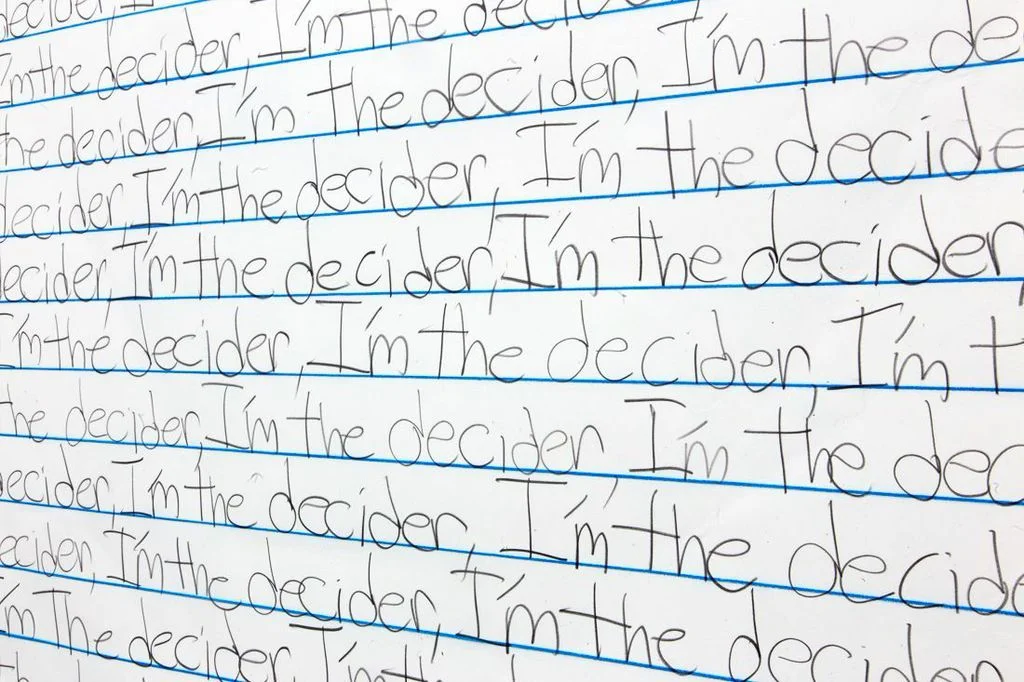 decider, I'm the deci
I'm the decider, I'm the decider, I'm the de
the decider, I'm the decider, I'm the decide
decider, I'm the decider, I'm the decide
decider, I'm the decider, I'm the decider
I'm the decider, I'm the decider, I'm t
the decider, I'm the decider I'm the dec
ecider, I'm the decider, I'm the decid
ecider, I'm the decider, I'm the decider
I'm The decider, I'm th